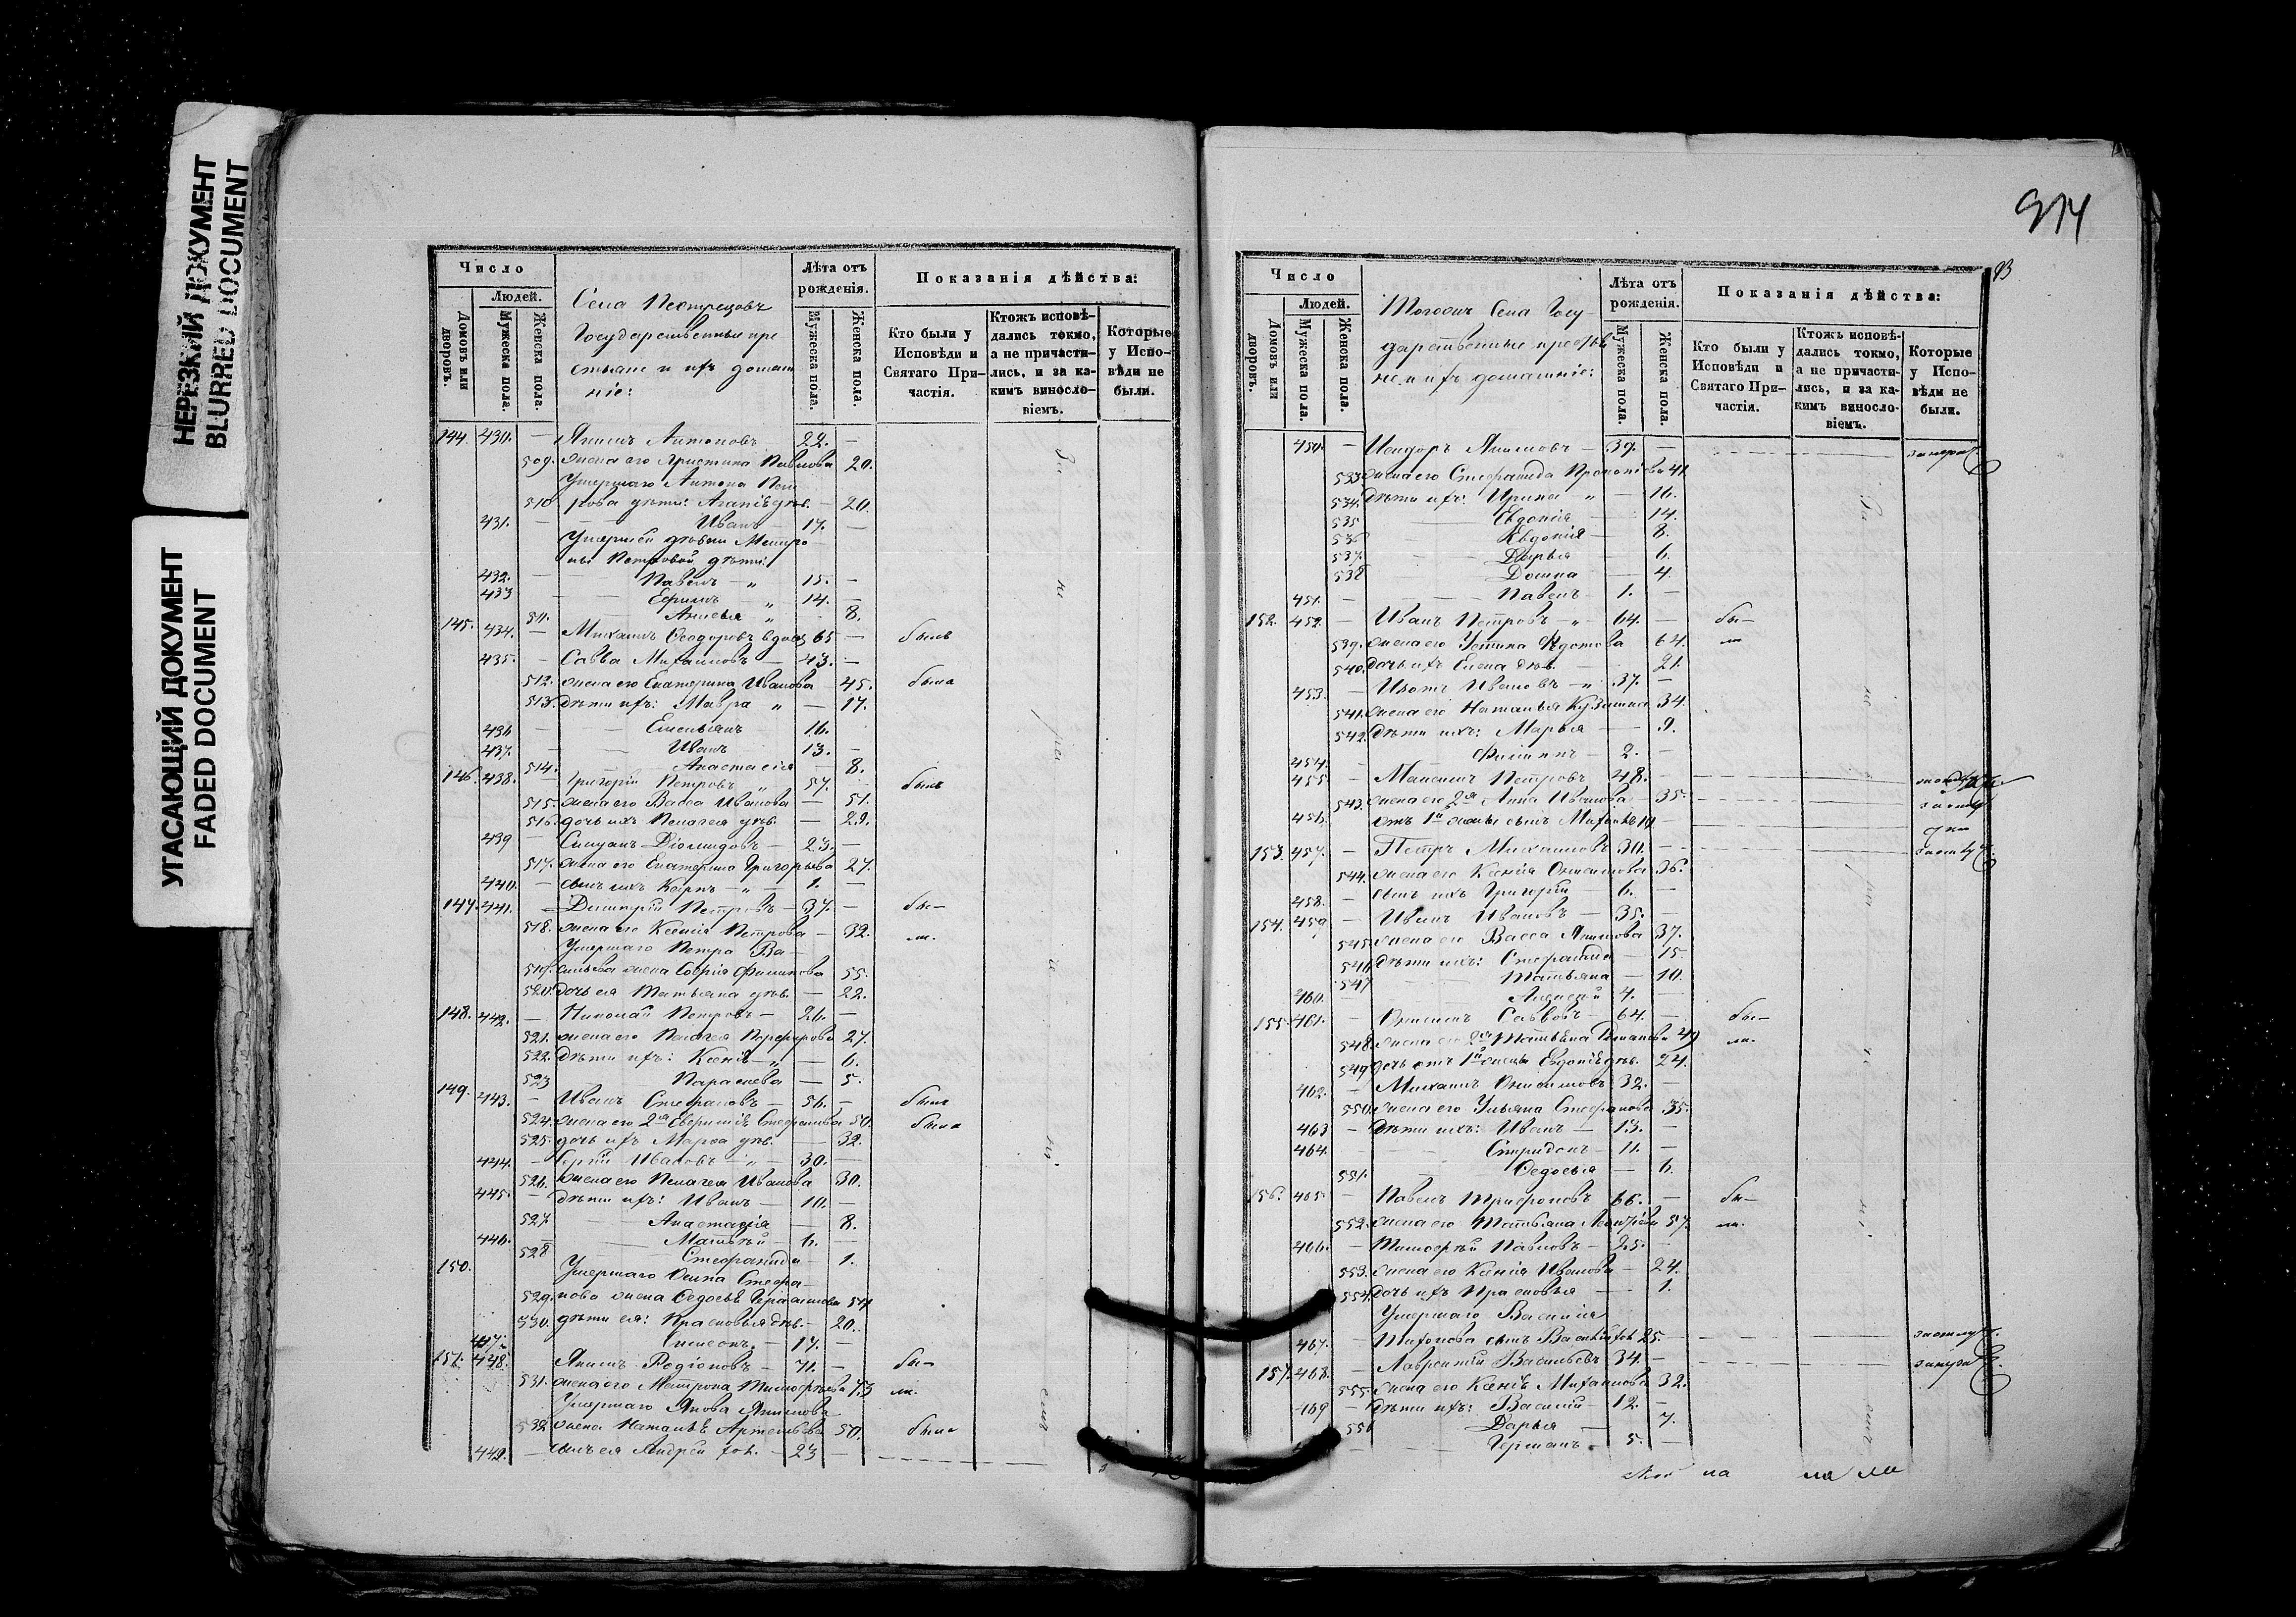 НЕРЕЗКИЙ ДОКУМЕНТ
BLURRED DOCUMENT
УГАСАЮЩИЙ ДОКУМЕНТ
FADED DOCUMENT
Число
Людей.
Домовъ или дворовъ.
Мужеска пола.
Женска пола.
Села Пестрецовъ
Государственные кре
стьяне и ихъ домаш
ніе:
Лѣта отъ рожденія.
Мужеска пола.
Женска пола.
Показанія дѣйства:
Кто были у Исповѣди и Святаго Причастія.
Ктожъ исповѣдались токмо, а не причастились, и за какимъ винословіемъ.
Которые у Исповѣди не были.
144. 430. — Якимъ Антоновъ 22. —
509. жена его Христина Павлова 20.
Умершаго Антона Пет
510 рова дѣти: Агапія дѣв. — 20.
431. — Иванъ — 17. —
Умершей дѣвки Матро
ны Петровой дѣти:
432. — Павелъ — " 15. —
433 — Ефимъ " 14. —
511. Анисья " 8.
145. 434. — Михаилъ Ѳеодоровъ вдовъ 65 — былъ
435. — Савва Михаиловъ — 43. —
512. жена его Екатерина Иванова — 45. была
513. дѣти ихъ: Мавра " — 17.
436 — Емельянъ 16.
437. — Иванъ 13. —
514. Анастасія — 8.
146. 438. — Григорій Петровъ " 57. — былъ
515. жена его Васса Иванова — 51.
516. дочь ихъ Пелагея дѣв. — 29.
439 — Симуанъ Діомидовъ — 23. —
517. жена его Екатерина Григорьева 27.
440. — сынъ ихъ Карпъ — " — 1. —
147. 441. — Димитрій Петровъ — 37. — бы—
518. жена его Ксенія Петрова — 32. ли.
Умершаго Петра Ва—
519. сильева жена Софія Филипова 55.
520. дочь ея Татьяна дѣв. — 22.
148. 442. — Николай Петровъ — 26. —
521. жена его Пелагея Порфирова 27.
522. дѣти ихъ: Ксенія — " — 6.
523 Параскева — 5.
149. 443. — Иванъ Стефановъ — 56. — былъ
524. жена его 2я Евфимія Стефанова 50. была
525. дочь ихъ Марѳа дѣв. — 32.
444. — Сергій Ивановъ — " — 30. —
526. жена его Пелагея Иванова 30.
445. — дѣти ихъ: Иванъ — 10. —
527 — Анастасія — 8.
446. — Матвѣй — 6. —
528 Стефанида — 1.
150. Умершаго Осипа Стефа—
529. нова жена Ѳедосья Герасимова 54
530. дѣти ея: Прасковья дѣв. — 20.
447. Симеонъ — 17. —
151. 448. Якимъ Родіоновъ — 71. — бы—
531. жена его Матрона Тимофеева 73 ли.
Умершаго Якова Якимова
532 жена Наталья Артемьева 50. была
449. — сынъ ея Андрей хол. — 23
914
93
Число
Людей.
Домовъ или дворовъ.
Мужеска пола.
Женска пола.
Тогожъ Села Госу
дарственные крестья
не и ихъ домашніе:
Лѣта отъ рожденія.
Мужеска пола.
Женска пола.
Показанія дѣйства:
Кто были у Исповѣди и Святаго Причастія.
Ктожъ исповѣдались токмо, а не причастились, и за какимъ винословіемъ.
Которые у Исповѣди не были.
450. — Исидоръ Якимовъ — 39. —
533 жена его Стефанида Прокопіева 41.
534. дѣти ихъ: Ирина — " — 16.
535 Евдокія — 14.
536 Евдокія — 8.
537. Дарья — 6.
538 Домна — 4.
451. — Павелъ — 1. —
152. 452. — Иванъ Петровъ — " — 64. — бы—
539. жена его Устина Ѳедотова 64. ли
540. дочь ихъ Елена дѣв. — 21.
453. — Изотъ Ивановъ — " 37. —
541. жена его Наталья Кузьмина 34.
542. дѣти ихъ: Марья — 9.
454. — Филиппъ — 2. —
455 — Максимъ Петровъ 48. —
543. жена его 2я Анна Иванова 35.
456. отъ 1й жены сынъ
153. 457. — Петръ Михаиловъ 30. —
544. жена его Ксенія Онисимова 36.
458. — сынъ ихъ Григорій — 6. —
154. 459 — Иванъ Ивановъ — 35. —
545. жена его Васса Якимова 37.
546 дѣти ихъ: Стефанида — 15.
547 Татьяна — 10.
460. Алексѣй 4. —
155. 461. — Онисимъ Савовъ — 64. — бы—
548. жена его 2я Татьяна 49 ли.
549 дочь отъ 1й жены Евдокія дѣв. 24.
462. — Михаилъ Онисимовъ 32. —
550. жена его Ульяна Стефанова 35.
463 — дѣти ихъ: Иванъ — 13. —
464. Спиридонъ — 11. —
551. Ѳедосья — 6.
156. 465. — Павелъ Трифоновъ 66. — бы—
552. жена его Татьяна 57. ли.
466. — Тимофей Павловъ — 25. —
553. жена его Ксенія Иванова — 24.
554. дочь ихъ Прасковья — 1.
Умершаго Василія
467. — Тихонова сынъ Василій хол. 25. —
157. 468. — Лаврентій Васильевъ 34. —
555. жена его Ксенія Михаилова 32.
469 — дѣти ихъ: Василій — 12. —
556 Дарья — 7.
Германъ — 5. —